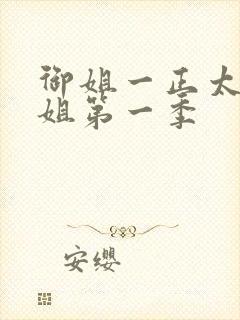 御姐一正太
姐第一季
安缨